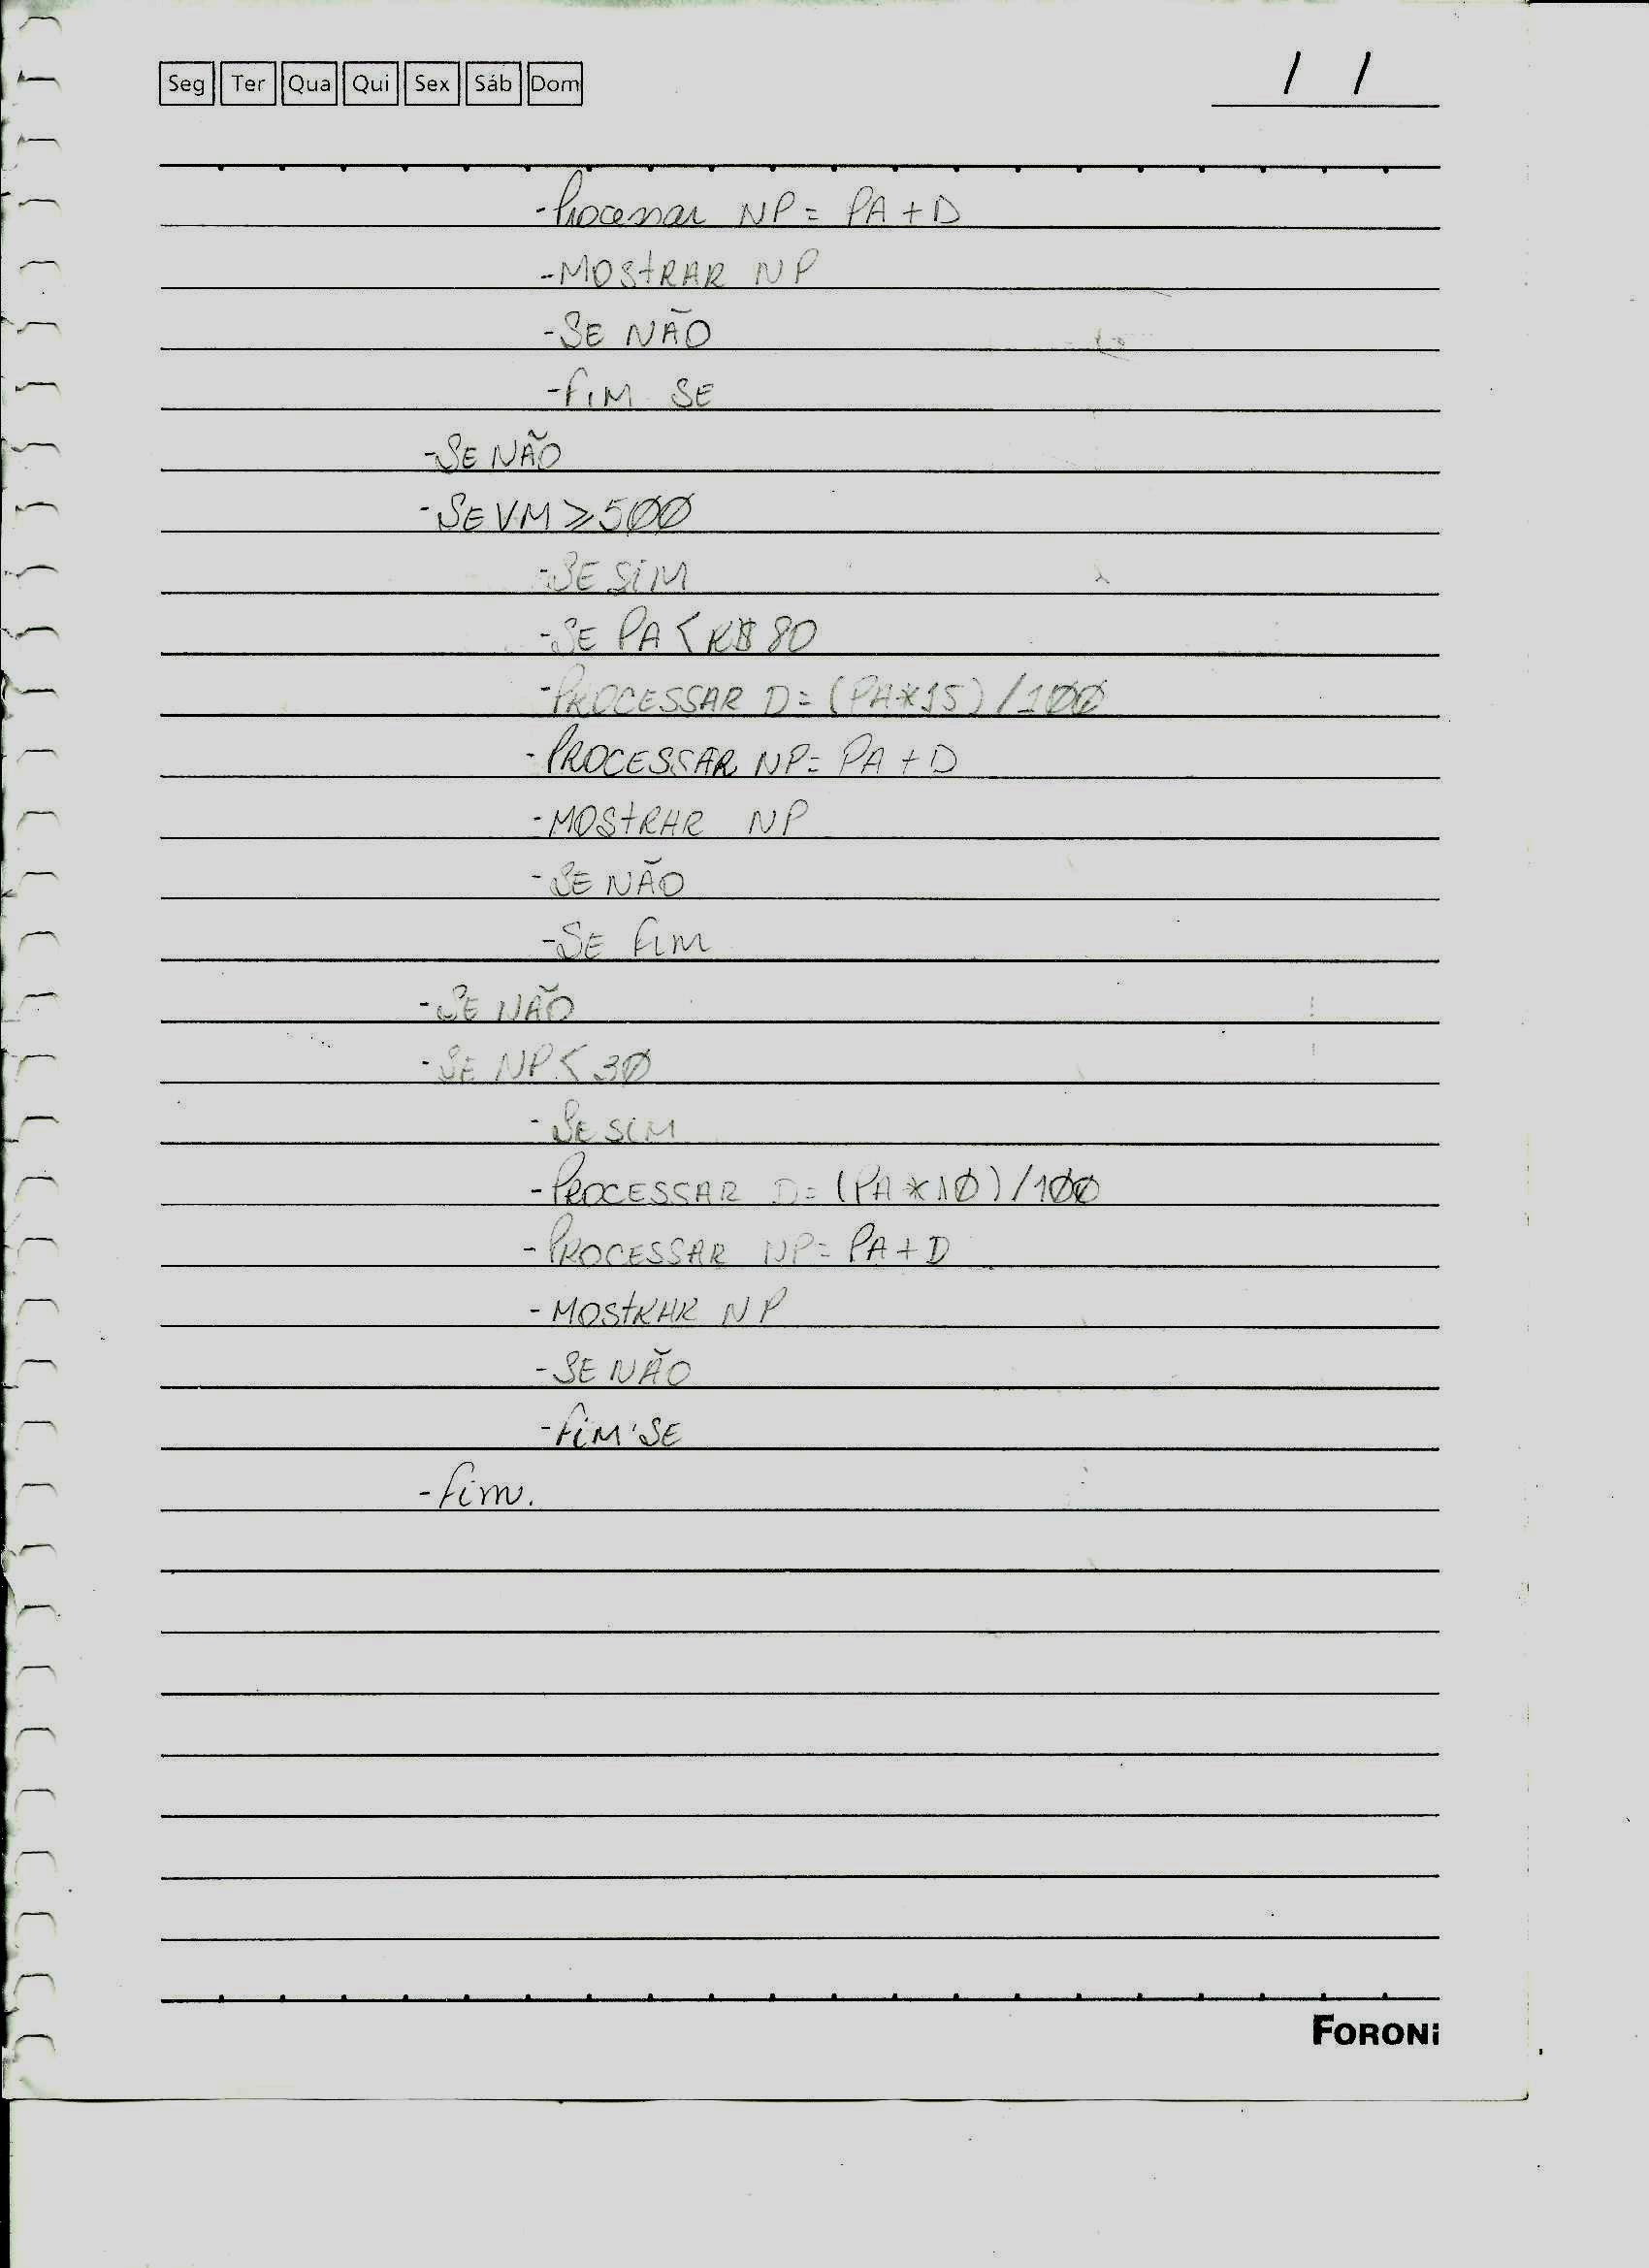 Seg Ter Qua Qui Sex Sáb Dom / /
-Processar NP = PA + D
-MOSTRAR NP
-SE NÃO
-FIM SE
-SE NÃO
-SE VM ≥ 500
-SE SIM
-SE PA < R$ 80
-PROCESSAR D = (PA*15) / 100
-PROCESSAR NP = PA + D
-MOSTRAR NP
-SE NÃO
-SE FIM
-SE NÃO
-SE NP < 30
-SE SIM
-PROCESSAR D = (PA*10) / 100
-PROCESSAR NP = PA + D
-MOSTRAR NP
-SE NÃO
-FIM SE
-Fim.
FORONI